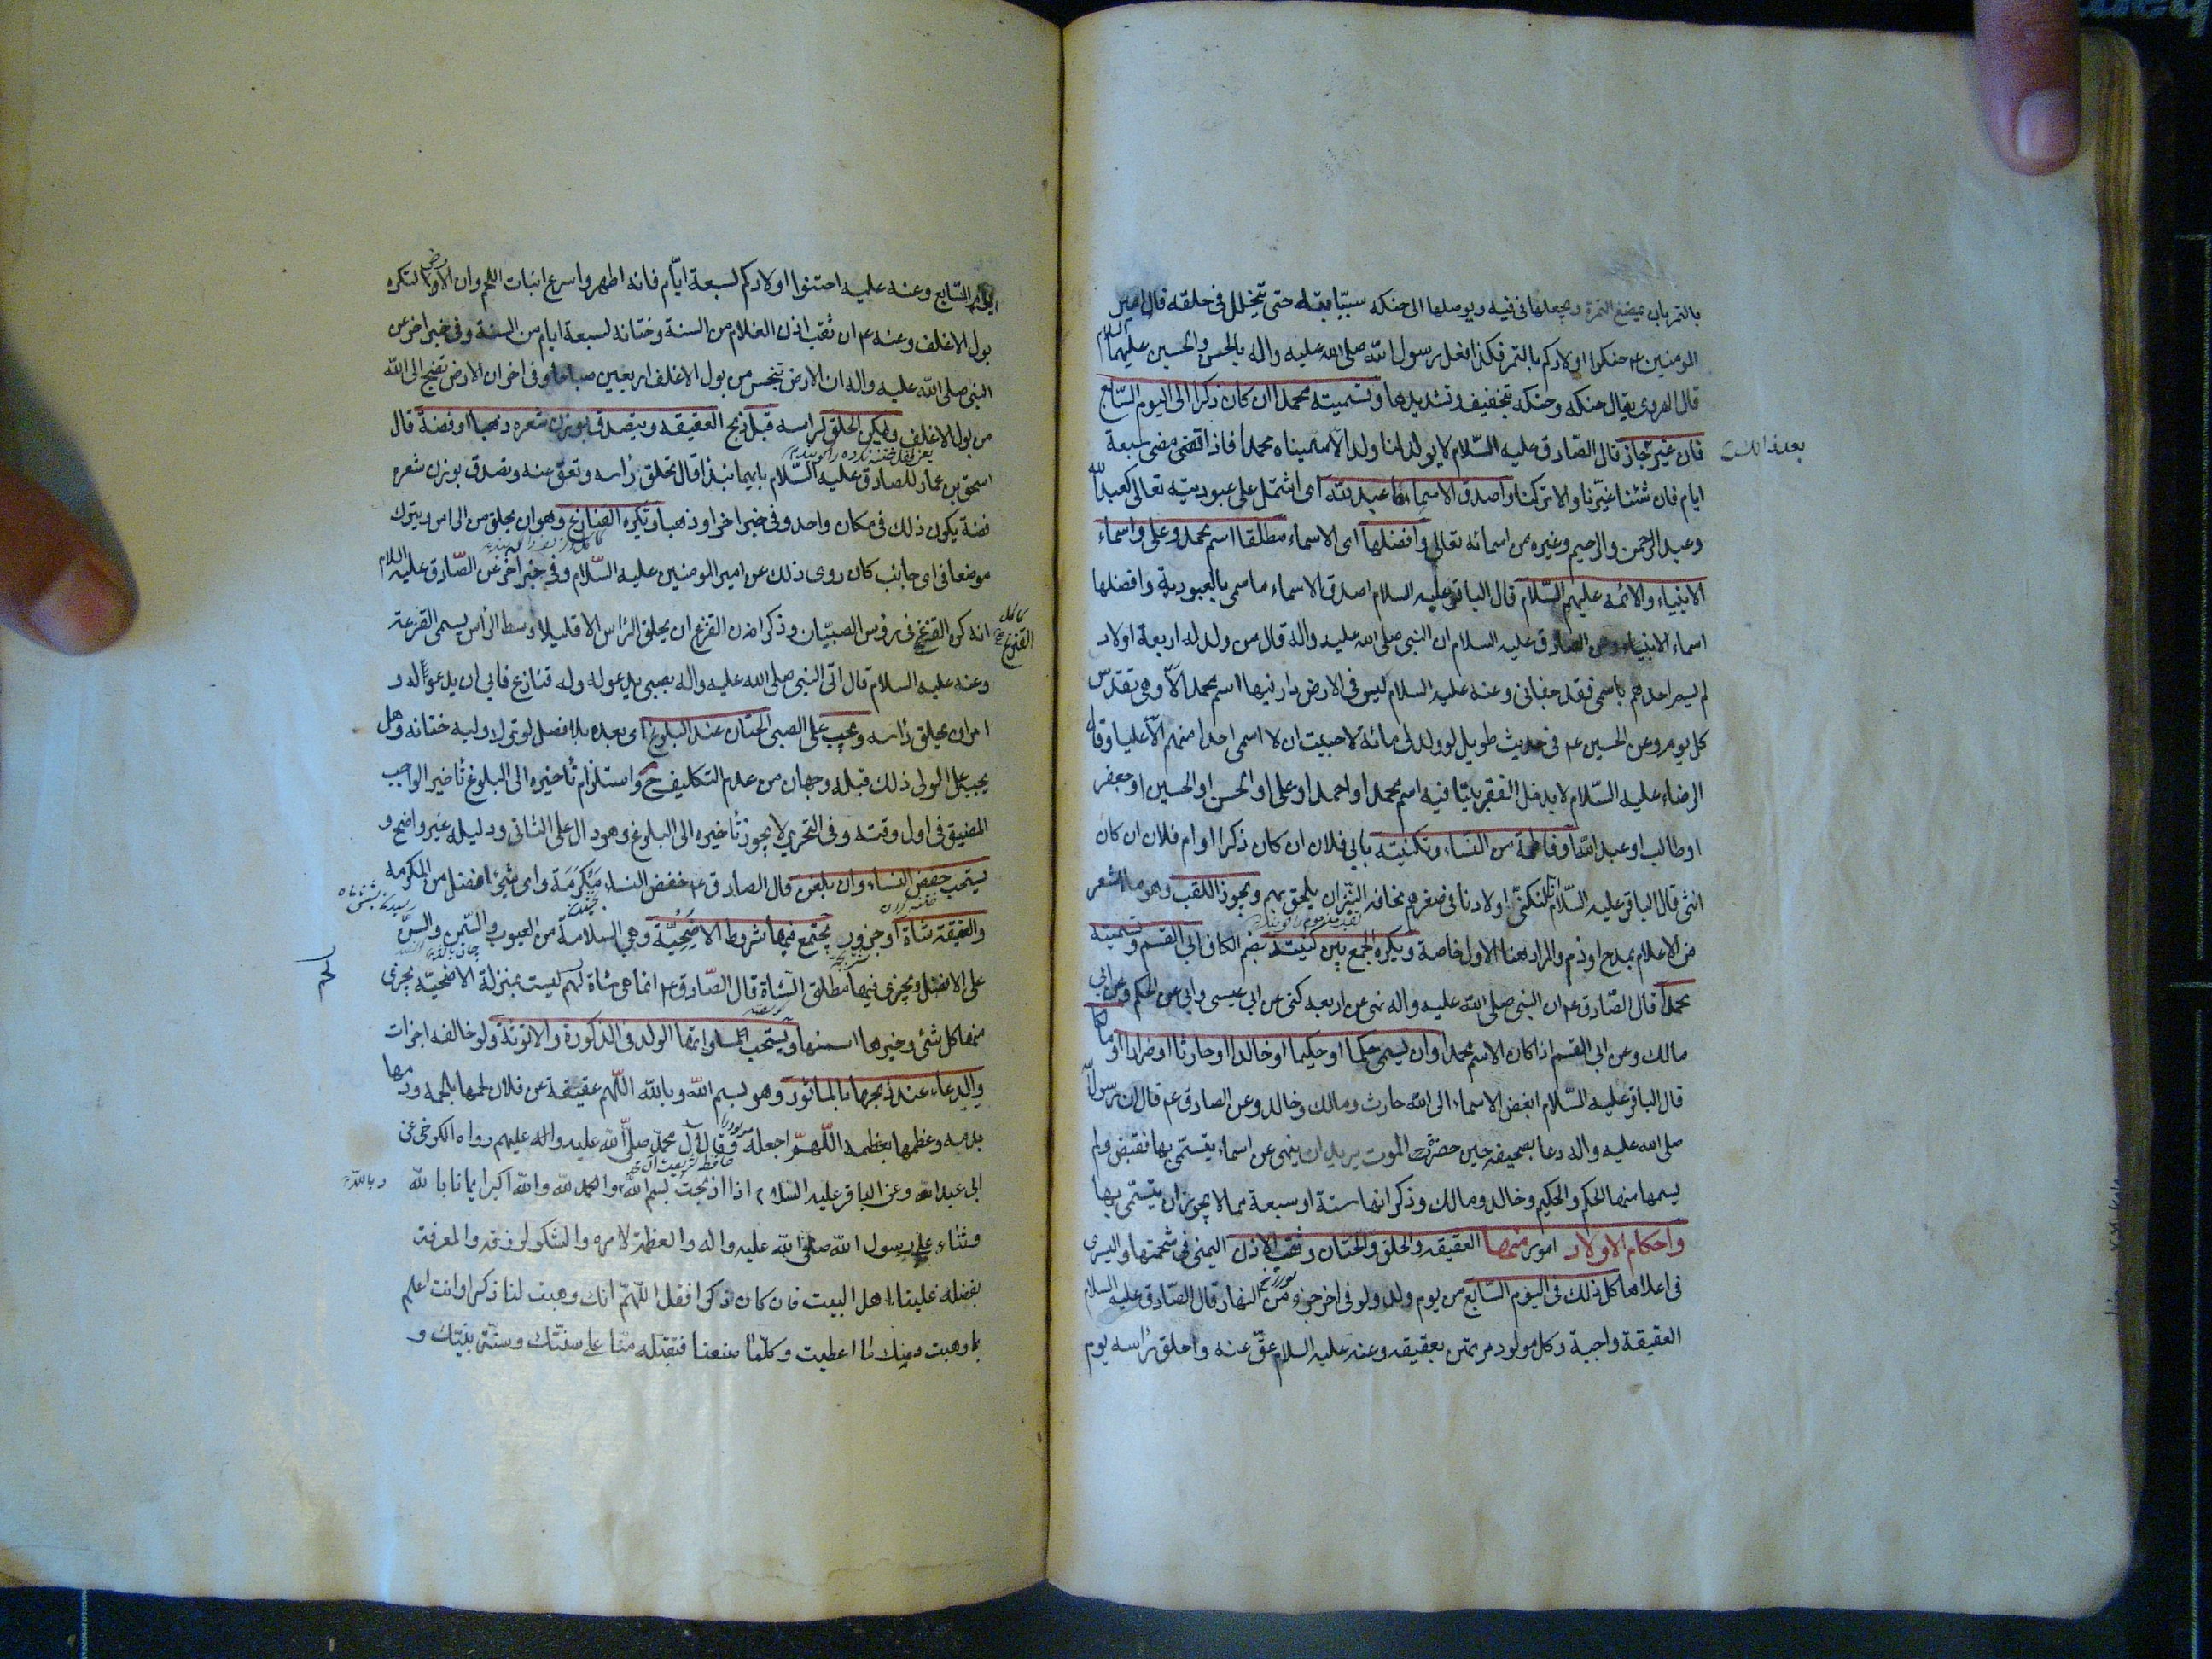 بالتمر بان يمضغ التمرة ويجعلها فى فيه ويوصلها الى حنكه سبابته حتى يتحلل فى حلقه قال امير
المومنين ع حنكوا اولادكم بالتمر فكذا فعل رسول الله صلى الله عليه واله بالحسن والحسين عليهما السلام
قال الهروى يقال حنكه وحنكه بتخفيف وتشديدها وتسميته محمدا ان كان ذكرا الى اليوم السابع
فان غير جاز قال الصادق عليه السلام لا يولد لنا ولد الا سميناه محمدا فاذا مضى سبعة
بعد ذلك
ايام فان شئنا غيرنا والا تركنا واصدق الاسماء ما عبد لله اى اشتمل على عبوديته تعالى كعبد الله
وعبد الرحمن والرحيم وغيره من اسمائه تعالى وافضلها اى الاسماء مطلقا اسم محمد وعلى واسماء
الانبياء والائمه عليهم السلام قال الباقر عليه السلام اصدق الاسماء ما سمى بالعبودية وافضلها
اسماء الانبياء وعن الصادق عليه السلام ان النبى صلى الله عليه واله قال من ولد له اربعة اولاد
لم يسم احدهم باسمى فقد جفانى وعنه عليه السلام ليس فى الارض دار فيها اسم محمد الا وهى تقدس
كل يوم وعن الحسين ع فى حديث طويل لو ولد لى مائة لاحببت ان لا اسمى احدا منهم الا عليا وقال
الرضا عليه السلام لا يدخل الفقر بيتا فيه اسم محمد او احمد او على او الحسن او الحسين او جعفر
او طالب او عبد الله او فاطمة من النساء وتكنيته بابى فلان ان كان ذكرا او ام فلان ان كان
انثى قال الباقر عليه السلام انا لنكنى اولادنا فى صغرهم مخافة النبز ان يلحق بهم ويجوز اللقب وهو ما اشعر
من الاعلام بمدح او ذم والمراد هنا الاول خاصة ويكره الجمع بين كنيته بضم الكاف ابى القسم وتسميته
محمدا قال الصادق ع ان النبى صلى الله عليه واله نهى عن اربعه كنى عن ابى عيسى وابى عن الحكم وعن ابى
مالك وعن ابى القسم اذا كان الاسم محمدا وان يسمى حكما او حكيما او خالدا او حارثا او ضرارا او مالكا
قال الباقر عليه السلام ابغض الاسماء الى الله حارث ومالك وخالد وعن الصادق ع قال ان رسول الله
صلى الله عليه واله دعا بصحيفه حين حضره الموت يريد ان ينهى عن اسماء يتسمى بها فقبض ولم
يسمها منها الحكم والحكيم وخالد ومالك وذكر انها ستة او سبعة مما لا يجوز ان يتسمى بها
واحكام الاولاد امور منها العقيقه والحلق والختان وثقب الاذن اليمنى فى شحمتها واليسرى
فى اعلاها كل ذلك فى اليوم السابع من يوم ولد ولو فى اخر جزء من النهار قال الصادق عليه السلام
العقيقة واجبة وكل مولود مرتهن بعقيقه وعنه عليه السلام عق عنه واحلق راسه يوم
السابع وعنه عليه اختنوا اولادكم لسبعة ايام فانه اطهر واسرع انبات اللحم وان الارض لتكره
بول الاغلف وعنه ع ان ثقب اذن الغلام من السنة وختانه لسبعة ايام من السنة وفى خبر اخر عن
النبى صلى الله عليه واله ان الارض تنجس من بول الاغلف اربعين صباحا وفى اخر ان الارض تضج الى الله
من بول الاغلف وليكن الحلق لراسه قبل ذبح العقيقه ويتصدق بوزن شعره ذهبا او فضة قال
اسحق بن عمار للصادق عليه السلام بايهما نبدا قال تحلق راسه وتعق عنه وتصدق بوزن شعره
فضة يكون ذلك فى مكان واحد وفى خبر اخر او ذهبا ويكره القنازع وهو ان يحلق من الراس ويترك
موضعا فى اى جانب كان روى ذلك عن امير المومنين عليه السلام وفى خبر اخر عن الصادق عليه السلام
كاكل
القنزع
انه كره القزع فى روس الصبيان وذكر ان القزع ان يحلق الراس الا قليلا وسط الراس يسمى القزعة
وعنه عليه السلام قال اتى النبى صلى الله عليه واله بصبى يدعو له وله قنازع فابى ان يدعو له و
امر ان يحلق راسه ويجب على الصبى الختان عند البلوغ اى بعده بلا فصل لو ترك وليه ختانه وهل
يجب على الولى ذلك قبله وجهان من عدم التكليف ح واستلزام تاخيره الى البلوغ تاخير الواجب
المضيق فى اول وقته وفى التحرير لا يجوز تاخيره الى البلوغ وهو دال على الثانى ودليله غير واضح و
يستحب خفض النساء وان بلغن قال الصادق ع خفض النساء مكرمة واى شئ افضل من المكرمه
والعقيقة شاة او جزور يجتمع فيها شروط الاضحية وهى السلامة من العيوب والسمن والسن
على الافضل ويجزى فيها مطلق الشاة قال الصادق ع انما هى شاة لحم ليست بمنزلة الاضحية يجزى
لحم
منها كل شئ وخيرها اسمنها ويستحب مساواتها الولد فى الذكورة والانوثة ولو خالفه اجزات
والدعاء عند ذبحها بالماثور وهو بسم الله وبالله اللهم عقيقة عن فلان لحمها بلحمه ودمها
بدمه وعظمها بعظمه اللهم اجعله وقاء لال محمد صلى الله عليه واله عليهم رواه الكرخى عن
ابى عبد الله وعن الباقر عليه السلام اذا ذبحت بسم الله والحمد لله والله اكبر ايمانا بالله
وثناء على رسول الله صلى الله عليه واله والعظمة لامره والشكر لرزقه والمعرفة
بفضله علينا اهل البيت فان كان ذكرا فقل اللهم انك وهبت لنا ذكرا وانت اعلم
بما وهبت ومنك ما اعطيت وكلما صنعنا فتقبله منا على سنتك وسنة نبيك و